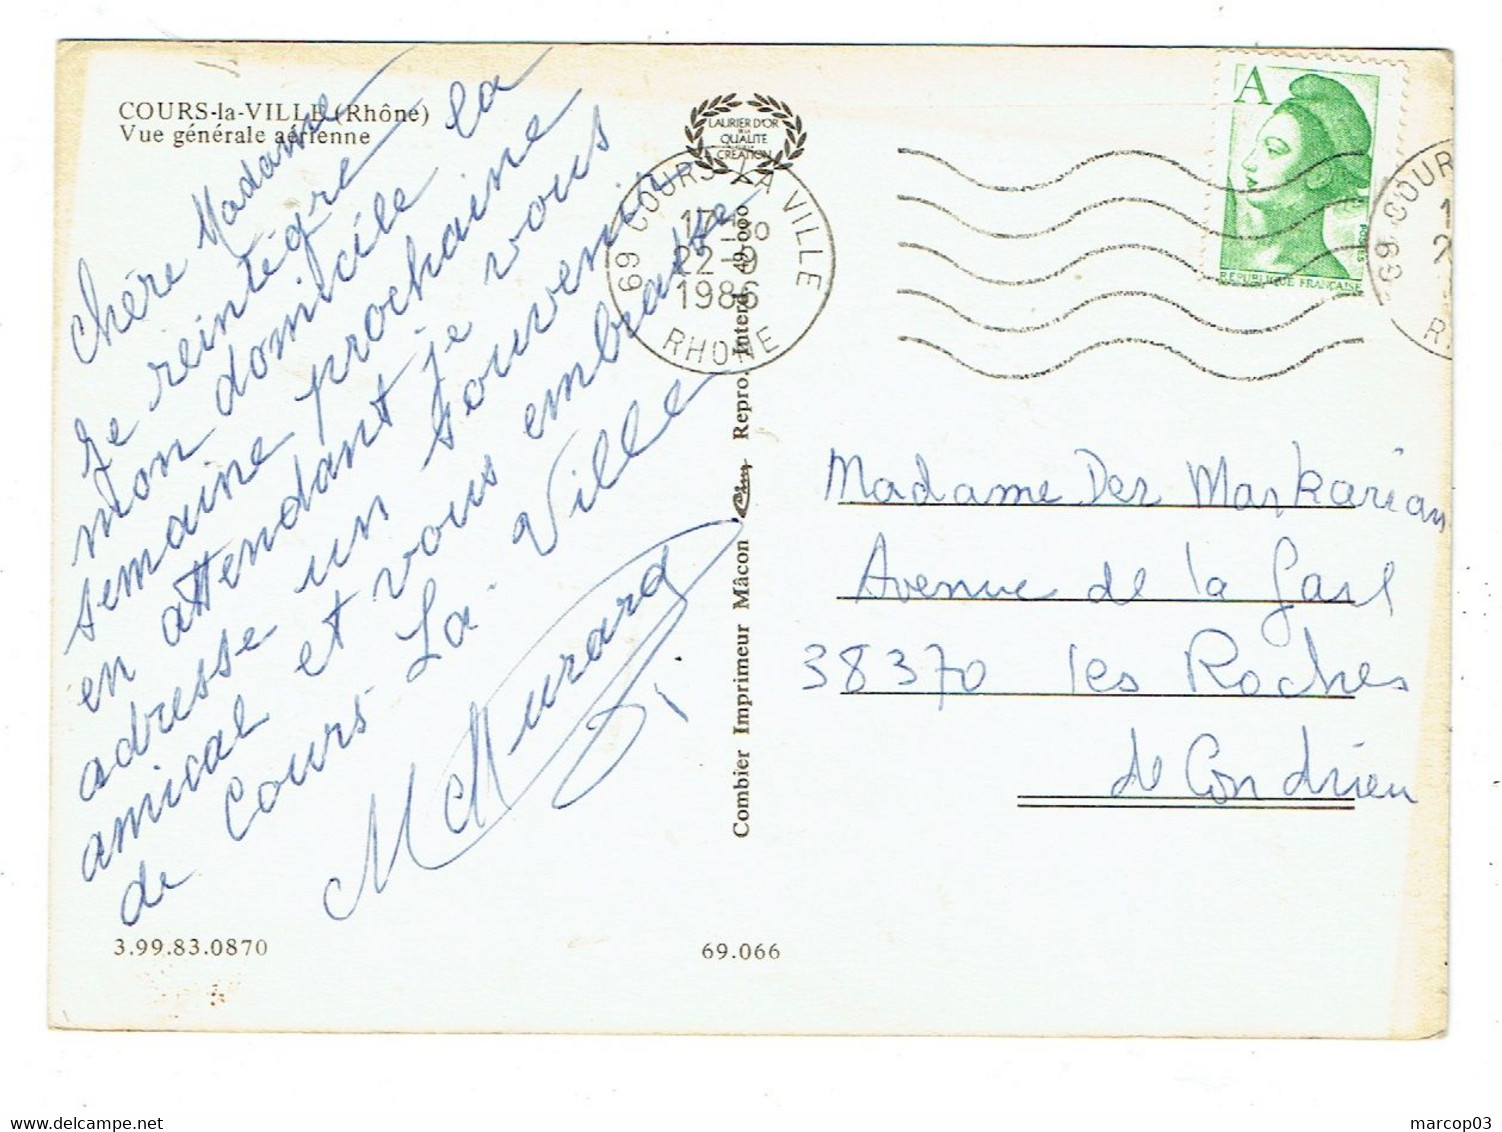 COURS-la-VILLE (Rhône)
Vue générale aérienne
Chère Madame
Je reintègre
mon domicile la
semaine prochaine
en attendant je vous
adresse un souvenir
amical et vous embrasse
de Cours-La-Ville
M Murard
3.99.83.0870
69.066
LAURIER D'OR
DE LA
QUALITE
CREATION
69 COURS LA VILLE
17H30
22-9
1986
RHONE
Combier Imprimeur Mâcon Cim Repro. Interd. 49.000
A
POSTES
REPUBLIQUE FRANÇAISE
69 COUR
Madame Der Markarian
Avenue de la Gare
38370 les Roches
de Condrieu
marcop03